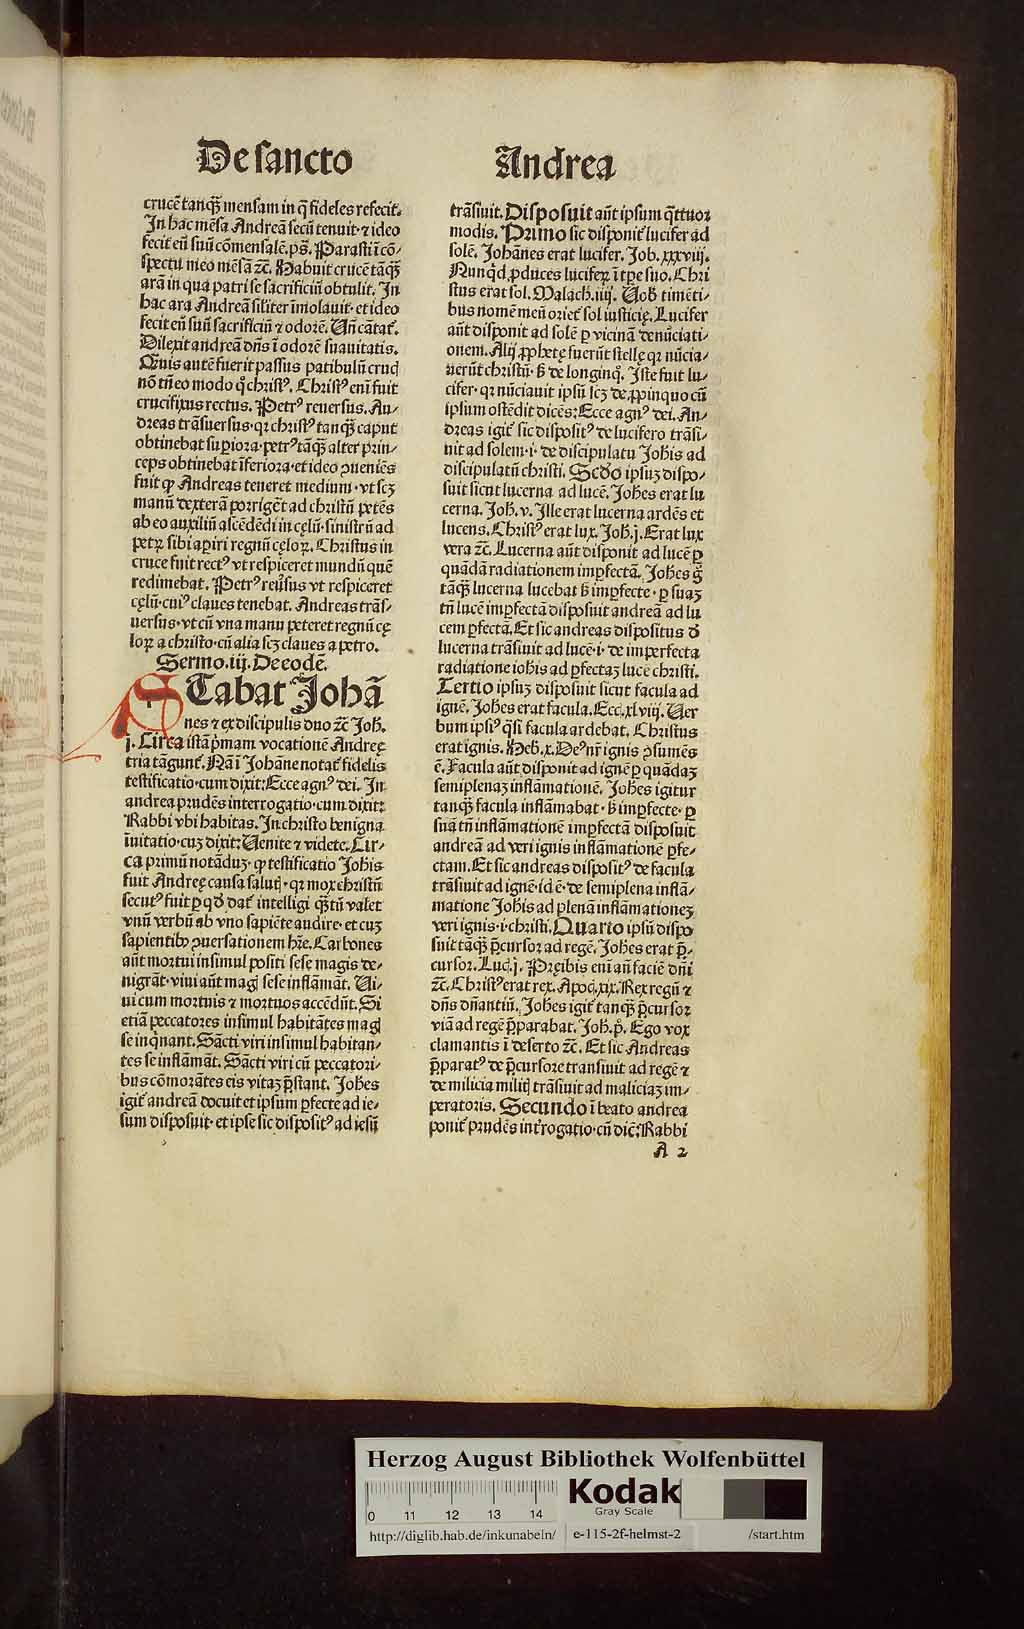 De sancto
Andrea
crucē tanq̄ȝ mensam in q̄ fideles refecit.
In hac mēsa Andreā secū tenuit· ⁊ ideo
fecit eū suū cōmensalē. ps̄. Parasti ī cō-
spectu meo mēsā ⁊c̄. Habuit crucē tāq̄ȝ
arā in qua patri se sacrificiū obtulit. In
hac ara Andreā silīter īmolauit· et ideo
fecit eū suū sacrificiū ⁊ odorē. Uñ cātat᷑.
Dilexit andreā dñs ī odorē suauitatis.
Quis autē fuerit passus patibulū cruc
nō tñ eo modo q̊ christꝰ. Christꝰ eni fuit
crucifixus rectus. Petrꝰ reuersus. An-
dreas trāsuersus· qꝛ christꝰ tanq̄ȝ caput
obtinebat suꝑiora· petrꝰ tāq̄ȝ alter prin-
ceps obtinebat īferiora· et ideo ꝯueniēs
fuit ꝙ Andreas teneret medium· vt scȝ
manū dexterā porrigēt ad christū petēs
ab eo auxiliū ascēdēdi in cęlū· sinistrū ad
petꝝ sibi aꝑiri regnū cęloꝝ. Christus in
cruce fuit rectꝰ vt respiceret mundū quē
redimebat. Petrꝰ reūsus vt respiceret
cęlū· cuiꝰ claues tenebat. Andreas trās-
uersus· vt cū vna manu peteret regnū cę
loꝝ a christo· cū alia scȝ claues a petro.
Sermo .iij. De eodē.
STabat Johā
nes ⁊ ex discipulis duo ⁊c̄ Joh̄.
j. Circa istā pīmam vocationē Andreę
tria tāgunt᷑. Nā ī Johāne notat᷑ fidelis
testificatio· cum dixit: Ecce agnꝰ dei. In
andrea prudēs interrogatio· cum dixit:
Rabbi vbi habitas. In christo benigna
īuitatio· cuȝ dixit: Uenite ⁊ videte. Cir-
ca primū notāduȝ· ꝙ testificatio Johis
fuit Andreę causa salut· qꝛ mox christū
secutꝰ fuit ꝑ qđ dat᷑ intelligi q̄ȝtū valet
vnū verbū ab vno sapiēte audire· et cuȝ
sapientibꝰ ꝯuersationem hr̄e. Carbones
aūt mortui insimul positi sese magis de-
nigrāt· viui aūt mag sese inflāmāt. Ui-
ui cum mortuis ⁊ mortuos accēdūt. Si
etiā peccatores insimul habitātes mag
se inq̇nant. Sācti viri insimul habitan-
tes se inflāmāt. Sācti viri cū peccatori-
bus cōmorātes eis vitaȝ p̄stant. Johes
igit᷑ andreā docuit et ipsum ꝑfecte ad ie-
sum disposuit· et ipse sic dispositꝰ ad iesū
trāsiuit. Disposuit aūt ipsum q̄ttuor
modis. Primo sic disponit᷑ lucifer ad
solē. Johānes erat lucifer. Job. xxxviij.
Nunqd ꝓduces luciferꝝ ī tꝑe suo. Chri
stus erat sol. Malach. iiij. Uob̄ timēti-
bus nomē meū oriet᷑ sol iusticię. Lucifer
aūt disponit ad solē ꝑ vicinā denūciati-
onem. Alij ꝓphetę fuerūt stellę qꝛ nūcia-
uerūt christū· s̄ de longinq̊. Iste fuit lu-
cifer· qꝛ nūciauit ipsū scȝ de ꝓpinquo cū
ipsum ostēdit dicēs: Ecce agnꝰ dei. An-
dreas igit᷑ sic dispositꝰ de lucifero trāsi-
uit ad solem· i· de discipulatu Joh̄is ad
discipulatū christi. Secd̄o ipsuȝ dispo-
suit sicut lucerna ad lucē. Joh̄es erat lu
cerna. Joh̄. v. Ille erat lucerna ardēs et
lucens. Christꝰ erat lux. Joh̄. j. Erat lux
vera ⁊c̄. Lucerna aūt disponit ad lucē ꝑ
quādā radiationem imꝑfectā. Joh̄es g̊
tāq̄ȝ lucerna lucebat s̄ imꝑfecte· ꝑ suaȝ
tñ lucē imꝑfectā disposuit andreā ad lu
cem ꝑfectā. Et sic andreas dispositus d̄
lucerna trāsiuit ad lucē· i· de imperfecta
radiatione iohis ad ꝑfectaȝ lucē christi.
Tertio ipsuȝ disposuit sicut facula ad
ignē. Johes erat facula. Ecc. xlviij. Uer
bum ipsiꝰ q̄si facula ardebat. Christus
erat ignis. Heb̄. x. Deꝰ nr̄ ignis ꝯsumēs
ē. Facula aūt disponit ad ignē ꝑ quādaȝ
semiplenaȝ inflāmationē. Johes igitur
tanq̄ȝ facula inflāmabat· s̄ imꝑfecte· ꝑ
suā tñ inflāmationē imꝑfectā disposuit
andreā ad veri ignis inflāmationē ꝑfe-
ctam. Et sic andreas dispositꝰ de facula
trāsiuit ad ignē· id ē· de semiplena inflā-
matione Joh̄is ad plenā inflāmationeȝ
veri ignis· i· christi. Quarto ipsū dispo
suit tāq̄ȝ p̄cursor ad regē. Joh̄es erat p̄-
cursor. Luc. j. Pręibis eni añ faciē dn̄i
⁊c̄. Christꝰ erat rex. Apoc. xix. Rex regū ⁊
dñs dñantiū. Joh̄es igit᷑ tanq̄ȝ p̄cursor
viā ad regē p̄parabat. Joh̄. p̄. Ego vox
clamantis ī deserto ⁊c̄. Et sic Andreas
p̄paratꝰ de p̄cursore transiuit ad regē ⁊
de milicia milit trāsiuit ad maliciaȝ im-
peratoris. Secundo ī beato andrea
ponit᷑ prudēs int̄rogatio· cū dic̄: Rabbi
A 2
Herzog August Bibliothek Wolfenbüttel
Kodak
Gray Scale
0 11 12 13 14
http://diglib.hab.de/inkunabeln/ e-115-2f-helmst-2 /start.htm